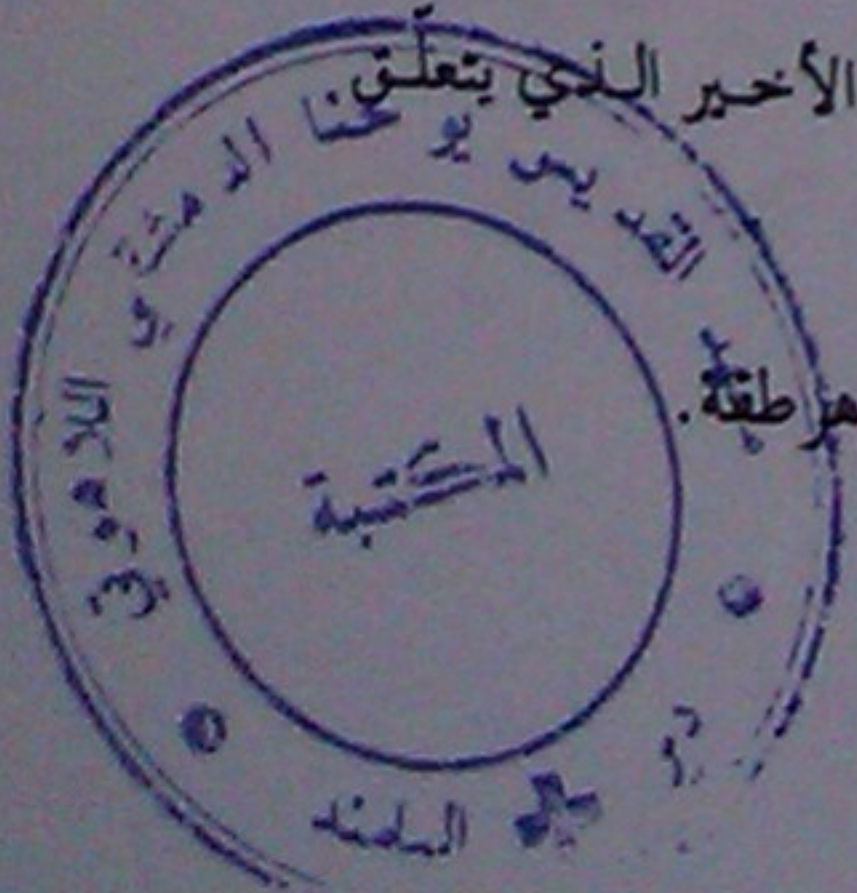 الأخير الذي يتعلّق
هرطقة.
معهد القديس يوحنا الدمشقي اللاهوتي
المكتبة
البلمند